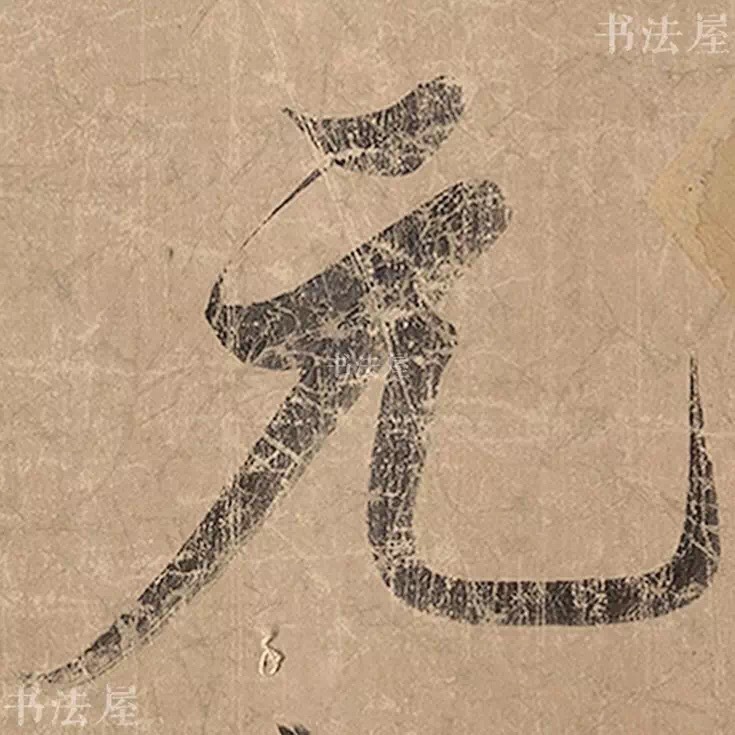 书法屋
元
书法屋
书法屋